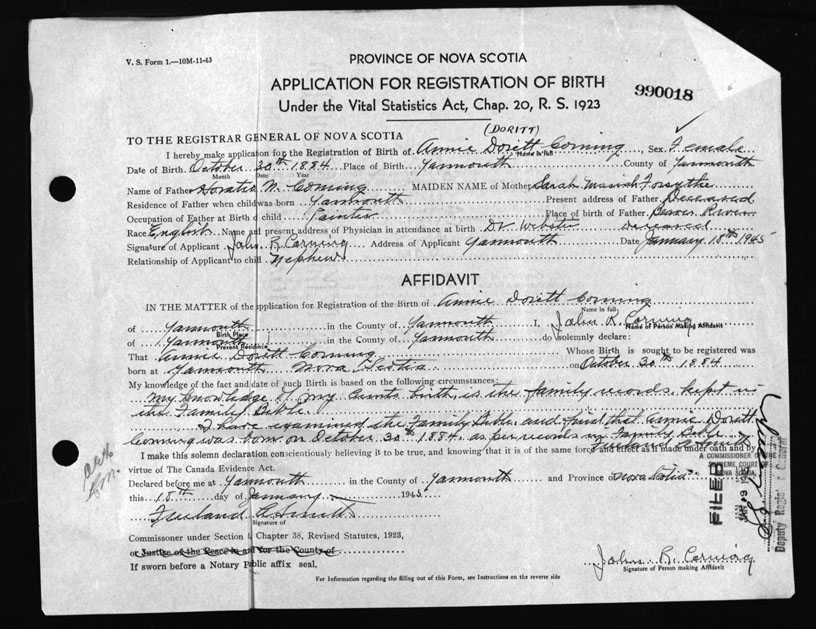 V. S. Form 1.—10M-11-43
PROVINCE OF NOVA SCOTIA
APPLICATION FOR REGISTRATION OF BIRTH
Under the Vital Statistics Act, Chap. 20, R. S. 1923
990018
TO THE REGISTRAR GENERAL OF NOVA SCOTIA
(DORITT)
I hereby make application for the Registration of Birth of Annie Dorett Corning, Sex Female
Name in full
Date of Birth October 30th 1884 Place of Birth Yarmouth County of Yarmouth
Month Date Year
Name of Father Horatio N. Corning MAIDEN NAME of Mother Sarah Forsythe
Residence of Father when child was born Yarmouth Present address of Father Deceased
Occupation of Father at Birth of child Painter Place of birth of Father Beaver River
Race English Name and present address of Physician in attendance at birth Dr Webster Deceased
Signature of Applicant John R. Corning Address of Applicant Yarmouth Date January 18th 1945
Relationship of Applicant to child Nephew
AFFIDAVIT
IN THE MATTER of the application for Registration of the Birth of Annie Dorett Corning
Name in full
of Yarmouth in the County of Yarmouth I, John R. Corning
Birth Place Name of Person Making Affidavit
of Yarmouth in the County of Yarmouth do solemnly declare:
Present Residence
That Annie Dorett Corning Whose Birth is sought to be registered was
born at Yarmouth Nova Scotia on October 30th 1884
My knowledge of the fact and date of such Birth is based on the following circumstances
My knowledge of my aunts birth, is the family records kept in
the Family Bible.
I have examined the Family Bible and find that Annie Dorett
Corning was born on October 30th 1884, as per records in Family Bible
I make this solemn declaration conscientiously believing it to be true, and knowing that it is of the same force and effect as if made under oath and by
virtue of The Canada Evidence Act.
A COMMISSIONER OF THE
SUPREME COURT OF
NOVA SCOTIA
Declared before me at Yarmouth in the County of Yarmouth and Province of Nova Scotia
this 18th day of January 1945
Signature of
Commissioner under Section 1, Chapter 38, Revised Statutes, 1923,
or Justice of the Peace in and for the County of
If sworn before a Notary Public affix seal.
John R. Corning
Signature of Person making Affidavit
For Information regarding the filling out of this Form, see Instructions on the reverse side
FILED
Deputy Registrar General